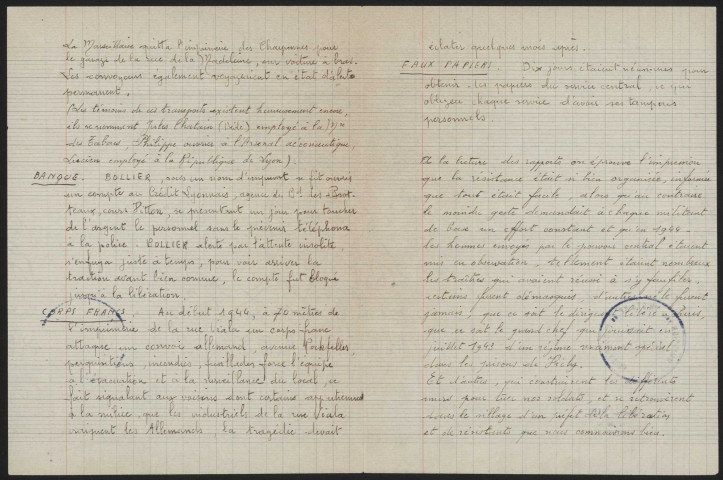 La Marseillaise quitta l'imprimerie des Charpennes pour
le garage de la rue de la Madeleine, sur voiture à bras.
Les convoyeurs également voyageaient en état d'alerte
permanent.
(Des témoins de ces transports existent heureusement encore,
ils se nomment Jules Chatain (Dédé) employé à la
des Tabacs, Philippe ouvrier à l'Arsenal aéronautique,
Lucien employé à la République de Lyon).
BANQUE: BOLLIER, sous un nom d'emprunt se fit ouvrir
un compte au Crédit Lyonnais, agence du Bd des Brot-
teaux, cours Vitton, se présentant un jour pour toucher
de l'argent le personnel sous le prévenir téléphona
à la police. BOLLIER alerté par l'attente insolite,
s'enfuya juste à temps, pour voir arriver la
traction avant bien connue, le compte fut bloqué
jusqu'à la libération.
CORPS FRANCS. Au début 1944, à 70 mètres de
l'imprimerie de la rue Viala un corps franc
attaque un convoi allemand, avenue Rockfeller,
perquisitions, incendies, fusillades force l'équipe
à l'évacuation et à la surveillance du local, ce
fait signalant aux voisins dont certains appartiennent
à la milice, que les industriels de la rue Viala
craignent les Allemands, la tragédie devait
éclater quelques mois après.
FAUX PAPIERS. Dix jours étaient nécessaires pour
obtenir les papiers du service central, ce qui
obligea chaque service d'avoir ses tampons
personnels.
A la lecture des rapports on éprouve l'impression
que la résistance était si bien organisée,
que tout était facile, alors qu'au contraire
le moindre geste demandait à chaque militant
de base un effort constant et qu'en 1944
les hommes envoyés par le pouvoir central étaient
mis en observation tellement étaient nombreux
les traîtres qui avaient réussi à s'y faufiler.
certains furent démasqués, d'autres ne le furent
jamais, que ce soit le dirigeant libéré
que ce soit le grand chef qui en
juillet 1943 d'un régime vraiment spécial
dans les prisons de Vichy.
Et d'autres, qui construisirent les différents
murs pour tuer nos soldats, et se retrouvèrent
sous le village d'un préfet de la libération
et de résistants que nous connaissons bien.